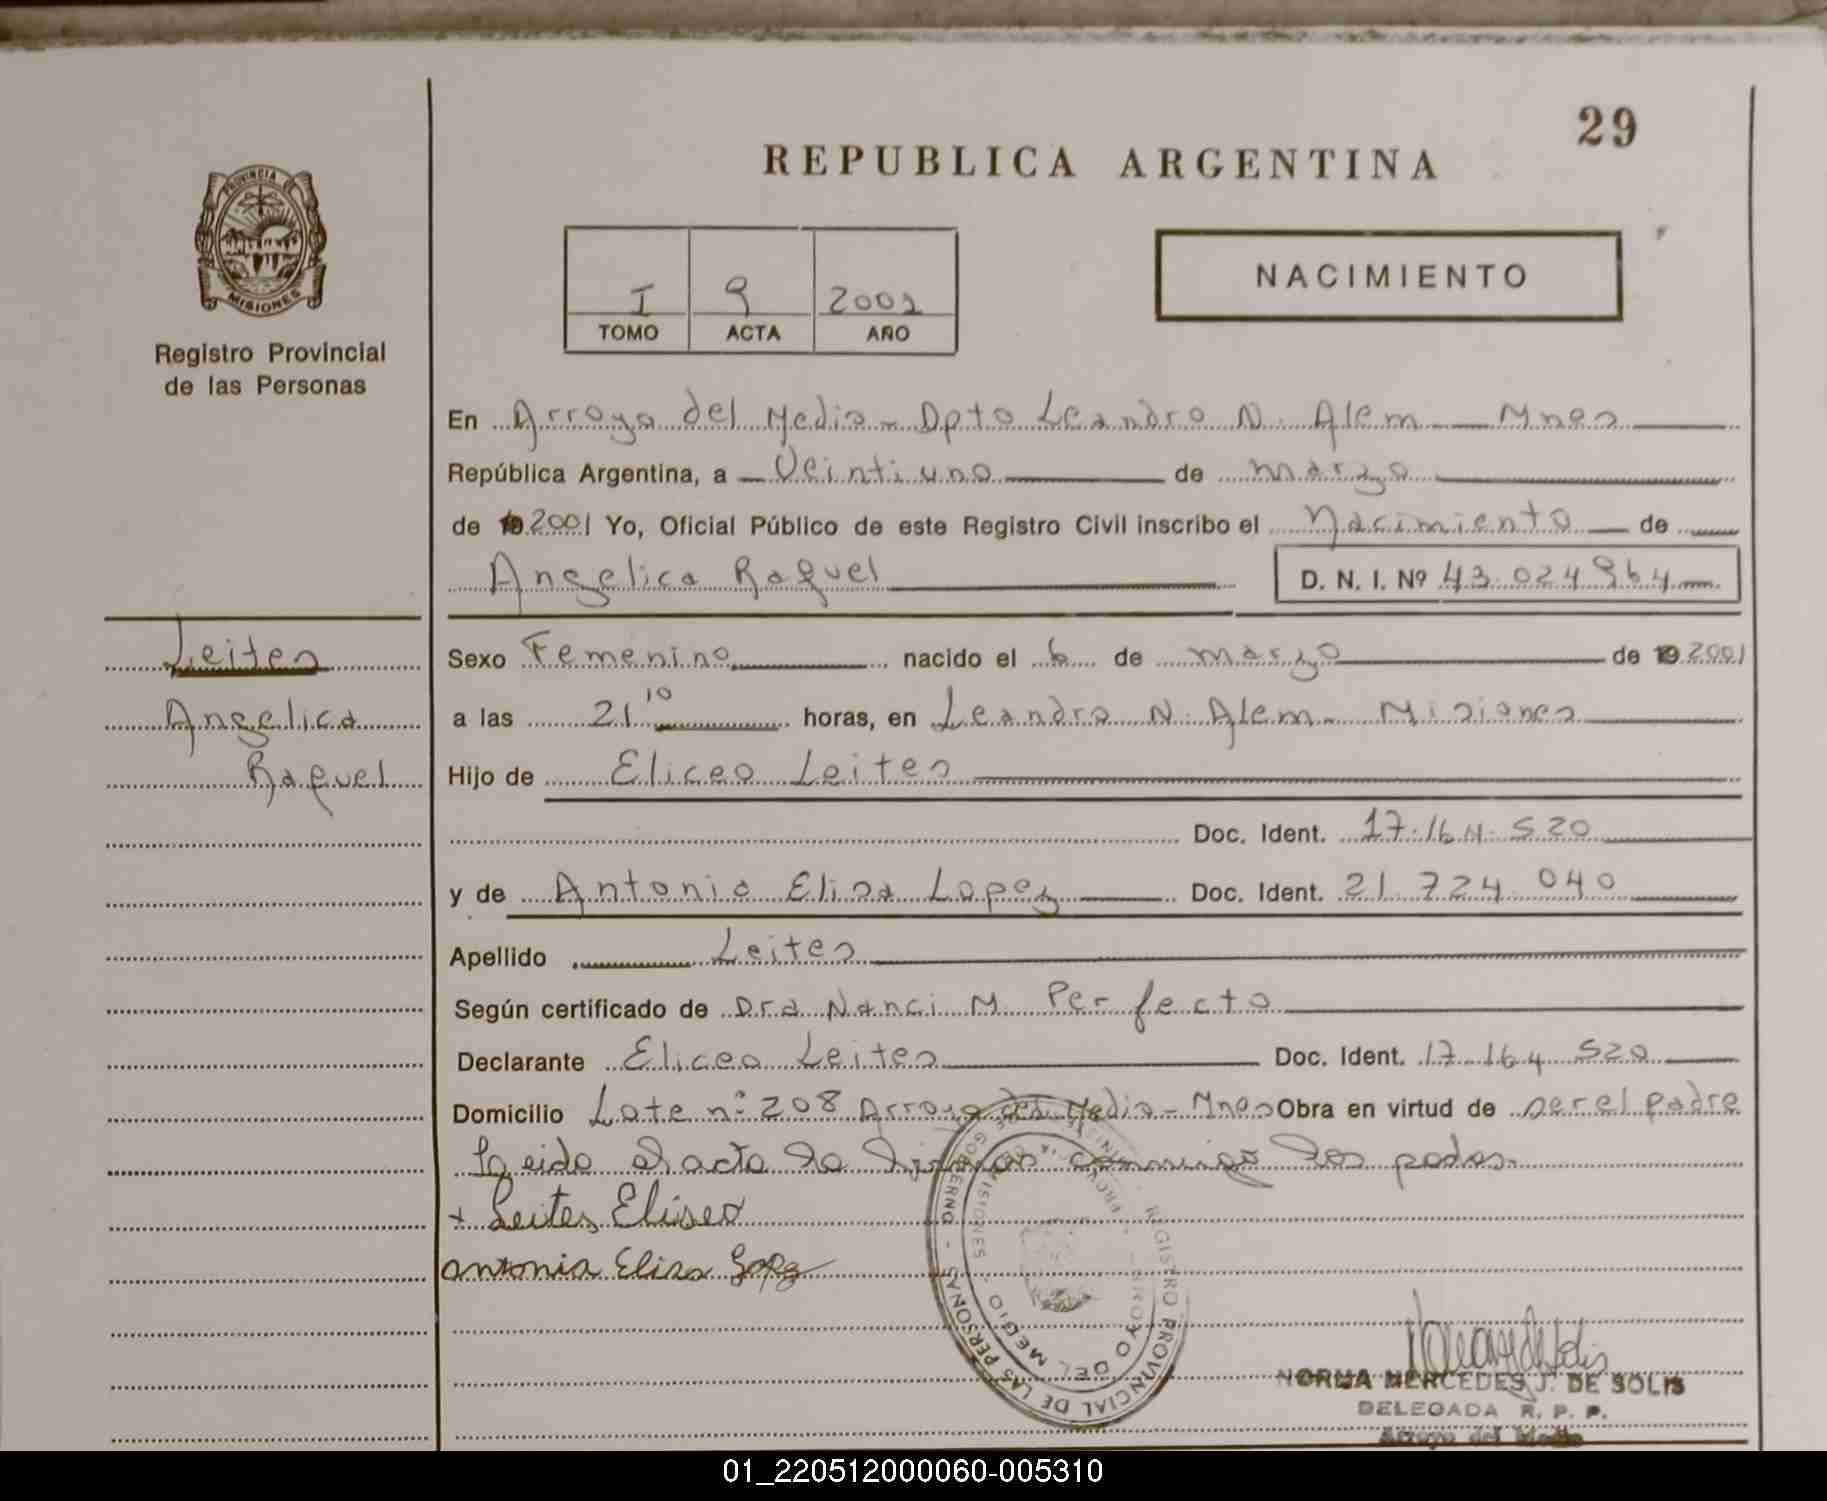 29
REPUBLICA ARGENTINA
PROVINCIA DE
MISIONES
Registro Provincial
de las Personas
I 9 2001
TOMO ACTA AÑO
NACIMIENTO
En Arroyo del Medio - Dpto Leandro N. Alem - Mnes
República Argentina, a Veintiuno de marzo
de 19 2001 Yo, Oficial Público de este Registro Civil inscribo el Nacimiento de
Angelica Raquel D. N. I. Nº 43.024.964
Leites
Angelica
Raquel
Sexo Femenino nacido el 6 de marzo de 19 2001
a las 21 10 horas, en Leandro N. Alem - Misiones
Hijo de Eliceo Leites
Doc. Ident. 17.164.520
y de Antonia Elisa Lopez Doc. Ident. 21.724.040
Apellido Leites
Según certificado de Dra Nanci M. Perfecto
Declarante Eliceo Leites Doc. Ident. 17.164.520
Domicilio Lote nº 208 Arroyo del Medio - Mnes Obra en virtud de ser el padre
Leido el acta la firman conmigo los padres.
+ Leites Eliseo
antonia Elisa Lopez
REGISTRO PROVINCIAL DE LAS PERSONAS - GOBIERNO
ARROYO DEL MEDIO - MISIONES
NORMA MERCEDES J. DE SOLIS
DELEGADA R. P. P.
Arroyo del Medio
01_220512000060-005310